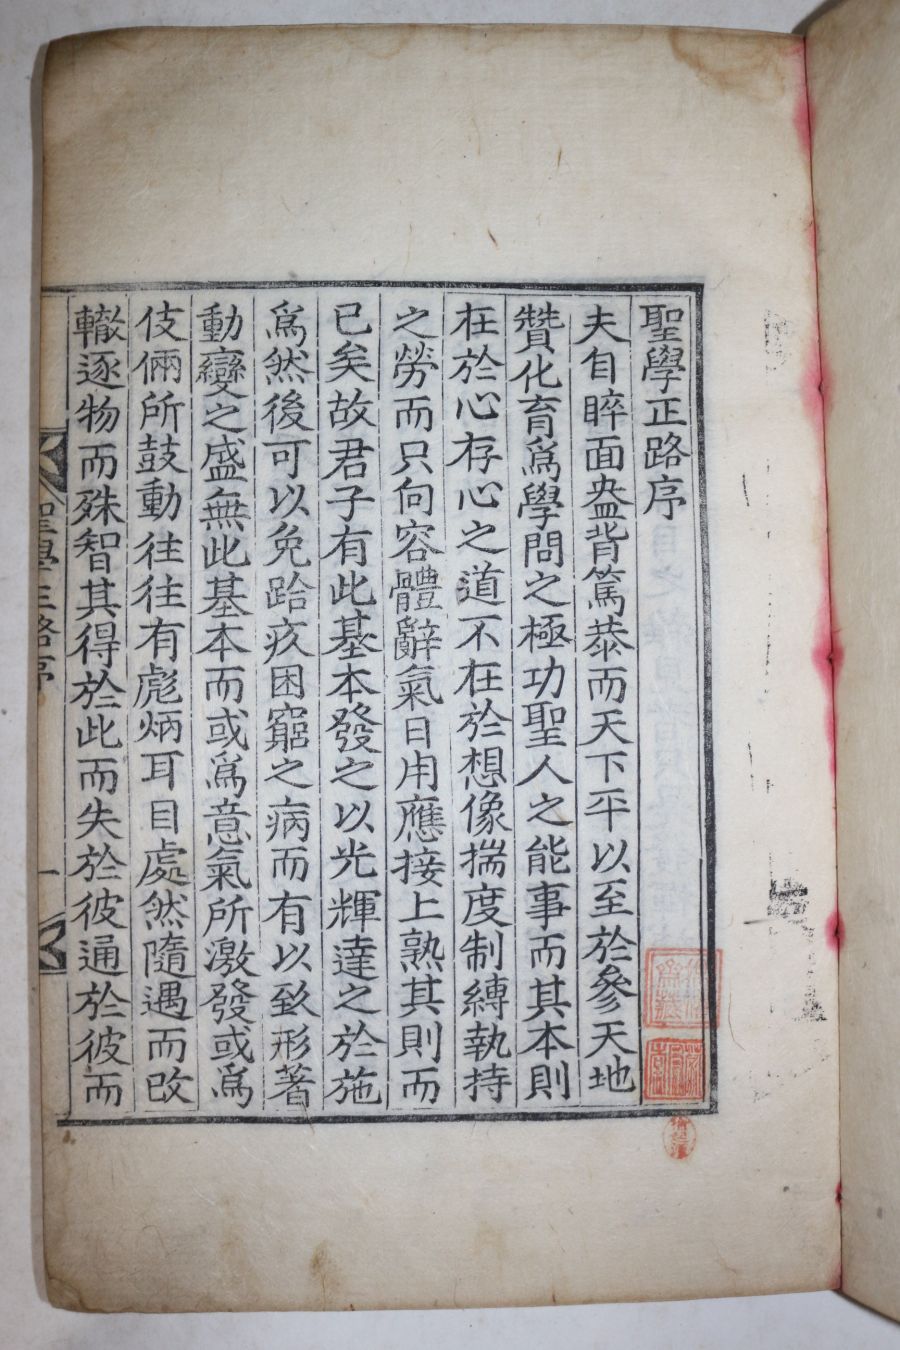 聖學正路序
夫自睟面盎背篤恭而天下平以至於參天地
贊化育爲學問之極功聖人之能事而其本則
在於心存心之道不在於想像揣度制縛執持
之勞而只向容體辭氣日用應接上熟其則而
已矣故君子有此基本發之以光輝達之於施
爲然後可以免跲疚困窮之病而有以致形著
動變之盛無此基本而或爲意氣所激發或爲
伎倆所鼓動往往有彪炳耳目處然隨遇而改
轍逐物而殊智其得於此而失於彼通於彼而
聖學正路序
一